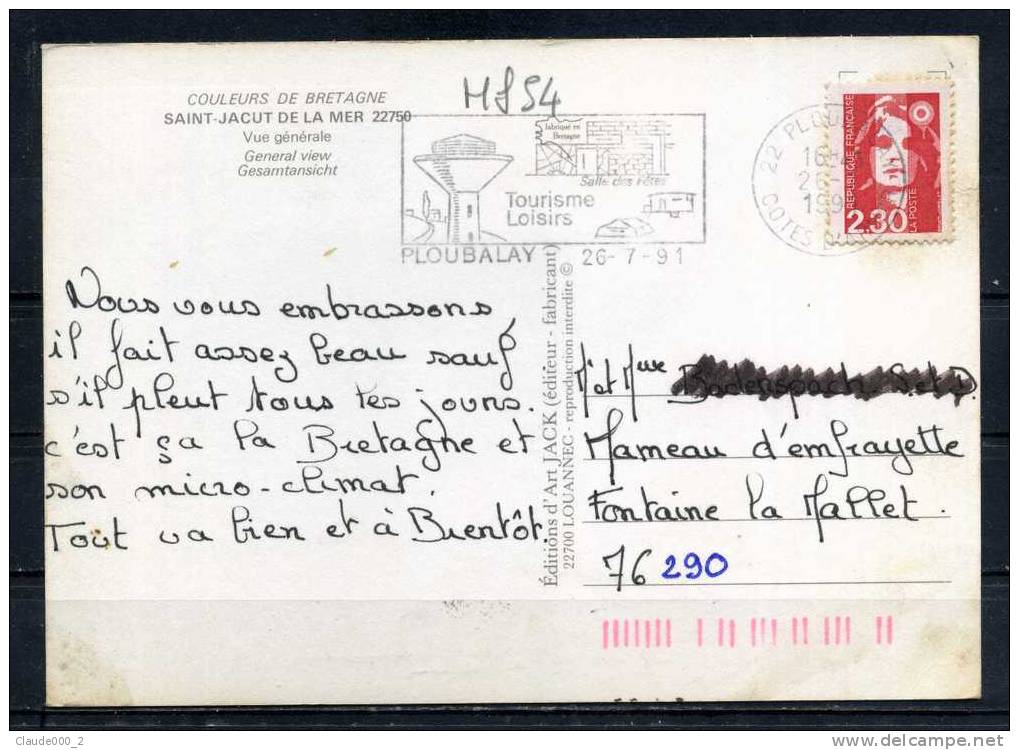 COULEURS DE BRETAGNE
SAINT-JACUT DE LA MER 22750
Vue générale
General view
Gesamtansicht
MS 54
fabriqué en
Bretagne
Salle des Fêtes
Tourisme
Loisirs
PLOUBALAY 26-7-91
22 PLOU
COTES
REPUBLIQUE FRANÇAISE
2.30
LA POSTE
Nous vous embrassons,
il fait assez beau sauf
s'il pleut tous les jours.
c'est ça la Bretagne et
son micro-climat.
Tout va bien et à Bientôt.
Éditions d'Art JACK (éditeur - fabricant)
22700 LOUANNEC - reproduction interdite ©
M' et Mme
Hameau d'emfrayette
Fontaine la Mallet.
76 290
Claude000_2